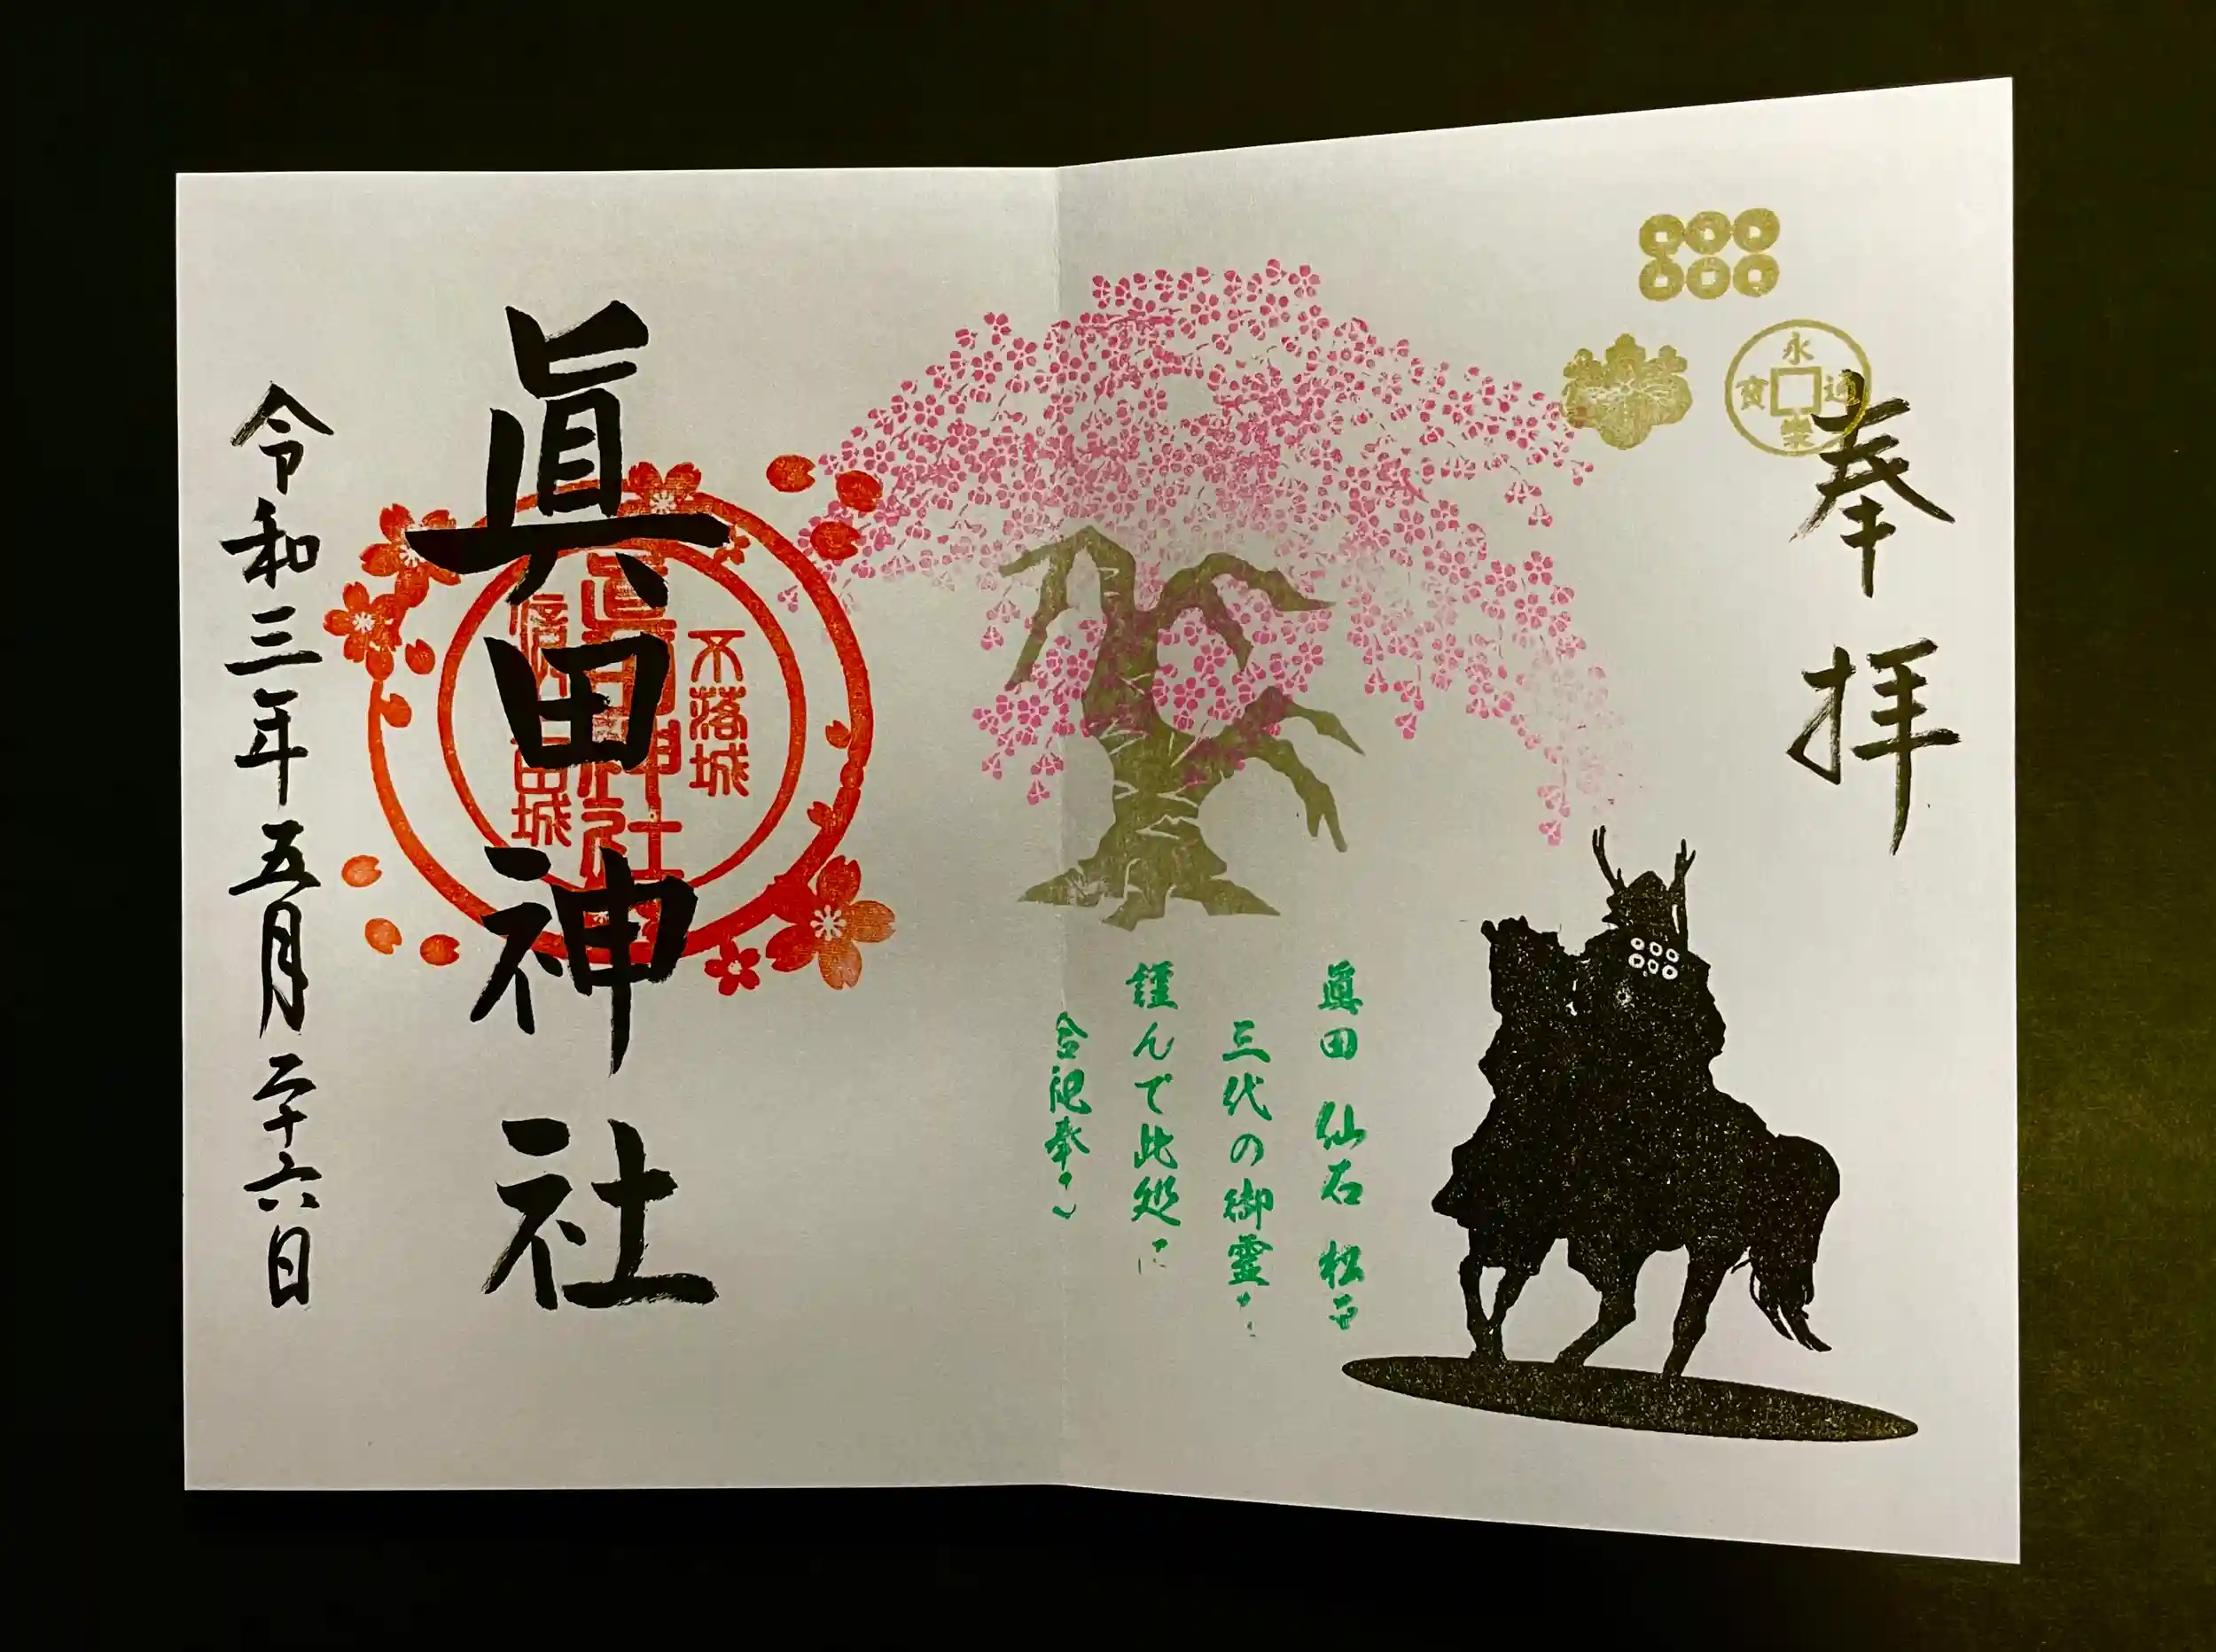 奉拝
永樂通寳
眞田 仙石 松平
三代の御霊を
謹んで此処に
合祀奉る
不落城
眞田神社
信州上田城
眞田神社
令和三年五月二十六日